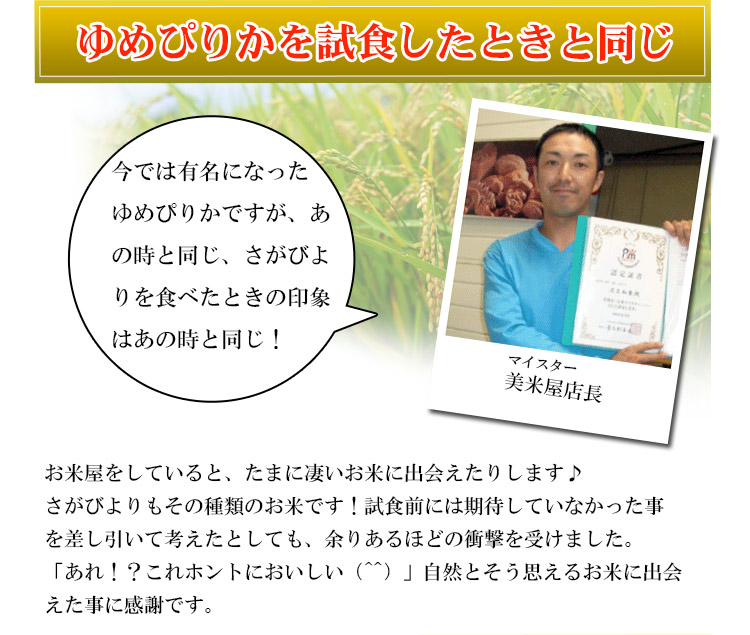 ゆめぴりかを試食したときと同じ
今では有名になった
ゆめぴりかですが、あ
の時と同じ、さがびよ
りを食べたときの印象
はあの時と同じ！
認定証書
マイスター
美米屋店長
お米屋をしていると、たまに凄いお米に出会えたりします♪
さがびよりもその種類のお米です！試食前には期待していなかった事
を差し引いて考えたとしても、余りあるほどの衝撃を受けました。
「あれ！？これホントにおいしい（^^）」自然とそう思えるお米に出会
えた事に感謝です。